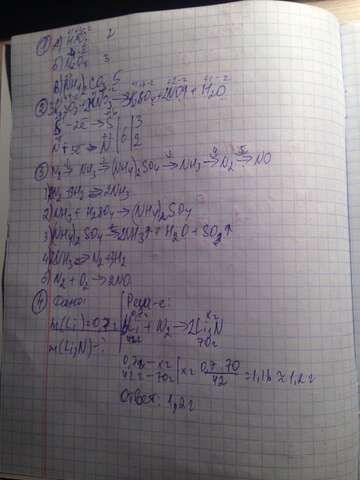 ① А) HNO₂ 2
б) N₂O₄ 3
в) (NH₄)₂CO₃ 5
② 3H₂SO₃ + 2HNO₃ → 3H₂SO₄ + 2NO↑ + H₂O
S - 2e → S | 6 | 3
N + 3e → N | 2
③ N₂ → NH₃ → (NH₄)₂SO₄ → NH₃ → N₂ → NO
1) N₂ + 3H₂ ⇄ 2NH₃
2) 2NH₃ + H₂SO₄ → (NH₄)₂SO₄
3) (NH₄)₂SO₄ → 2NH₃↑ + H₂O + SO₃↑
4) 2NH₃ ⇄ N₂ + 3H₂
5) N₂ + O₂ → 2NO
④ Дано: Реш-е:
m(Li) = 0,7г 6Li + N₂ → 2Li₃N
m(Li₃N) - ? 42г 70г
0,7г - xг
42г - 70г x = 0,7 · 70 / 42 = 1,16 ≈ 1,2г
Ответ: 1,2г